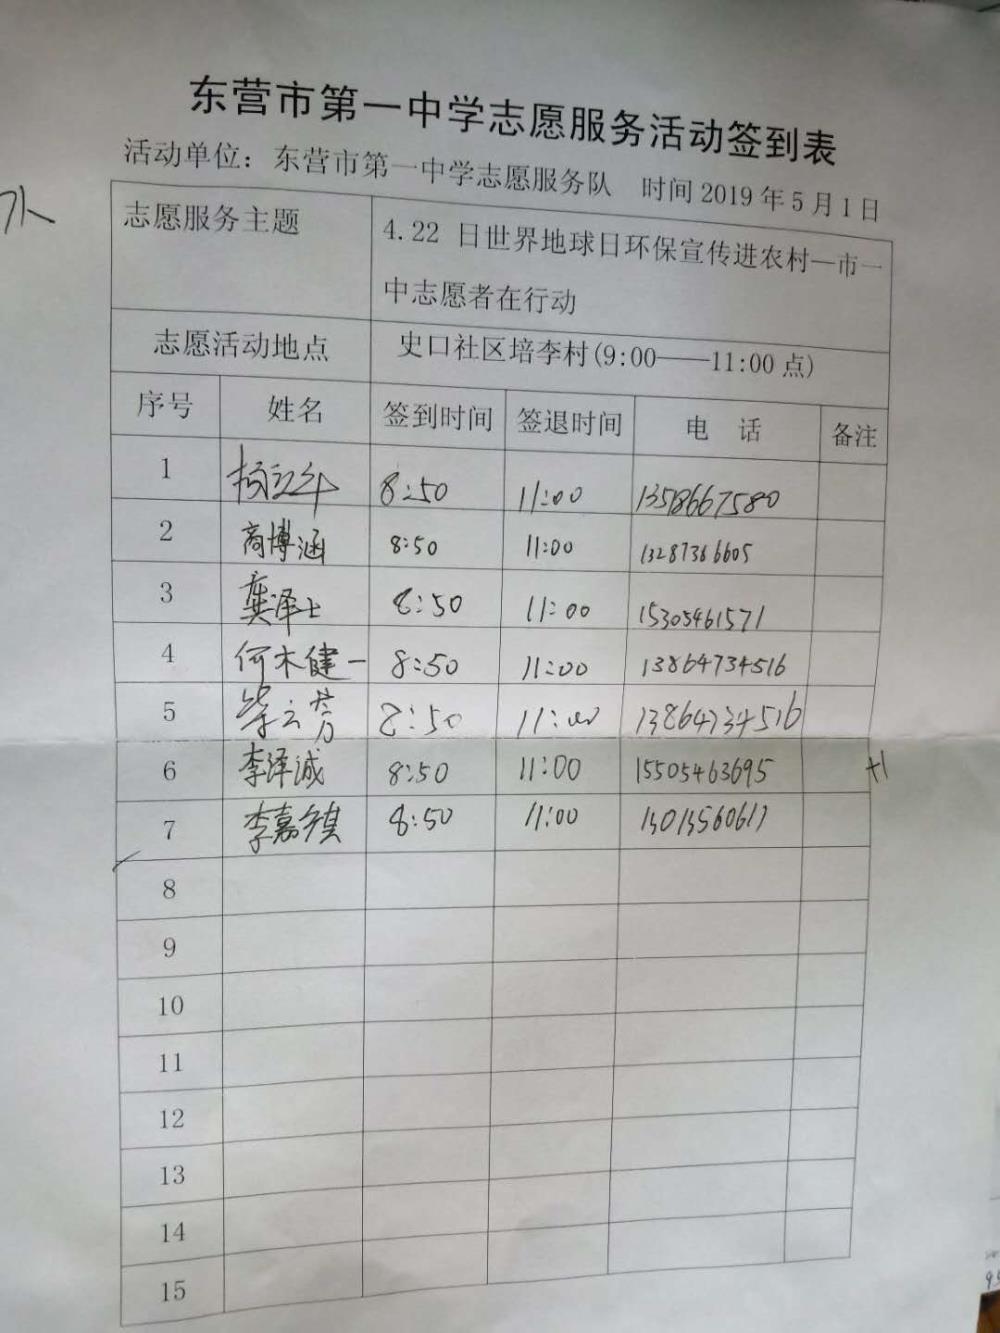 东营市第一中学志愿服务活动签到表
活动单位：东营市第一中学志愿服务队 时间 2019 年 5 月 1 日
志愿服务主题 4.22 日世界地球日环保宣传进农村—市一
中志愿者在行动
志愿活动地点 史口社区培李村(9:00——11:00 点)
序号 姓名 签到时间 签退时间 电 话 备注
1 8:50 11:00 13518667580
2 商博涵 8:50 11:00 13287366605
3 龚泽士 8:50 11:00 15305461571
4 何木健一 8:50 11:00 13864734516
5 8:50 11:00 13864734516
6 李泽诚 8:50 11:00 15505463695 +1
7 8:50 11:00
8
9
10
11
12
13
14
15